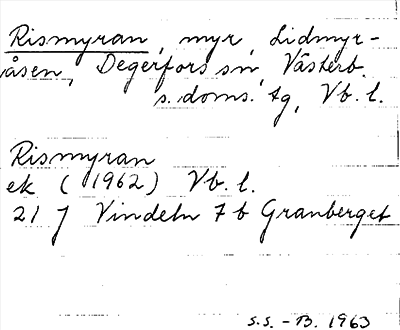 Rismyran, myr, Lidmyr-
åsen, Degerfors sn, Västerb.
s. doms. tg, Vb. l.
Rismyran
ek (1962) Vb. l.
21 J Vindeln 7 b Granberget
S.S. - B. 1963